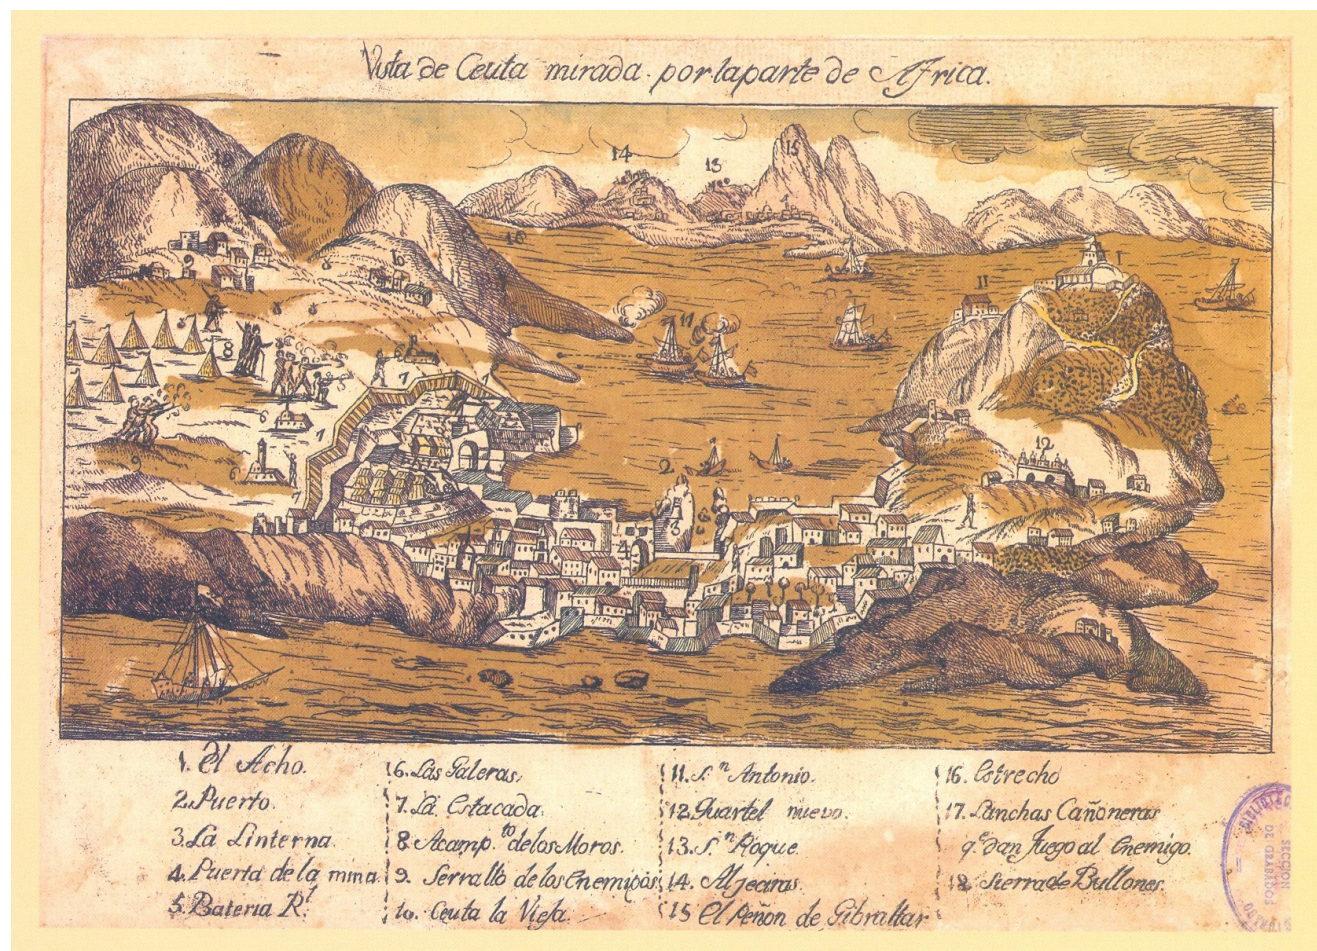 Vista de Ceuta mirada por la parte de Africa.
18
14
13
15
16
1
11
10
9
8
17
8
6
7
6
7
9
6
7
2
12
3
4
1. El Acho.
2. Puerto.
3. La Linterna.
4. Puerta de la mina
5. Bateria R.l
6. Las Galeras.
7. La Estacada.
8. Acamp.to de los Moros.
9. Serrallo de los Enemigos.
10. Ceuta la Vieja.
11. S.n Antonio.
12. Quartel nuevo.
13. S.n Roque.
14. Aljeciras.
15 El Peñon de Gibraltar
16. Estrecho
17. Lanchas Cañoneras
q.e dan fuego al Enemigo.
18. Sierra de Bullones.
BIBLIOTEC
SECCION
DE GRABADOS